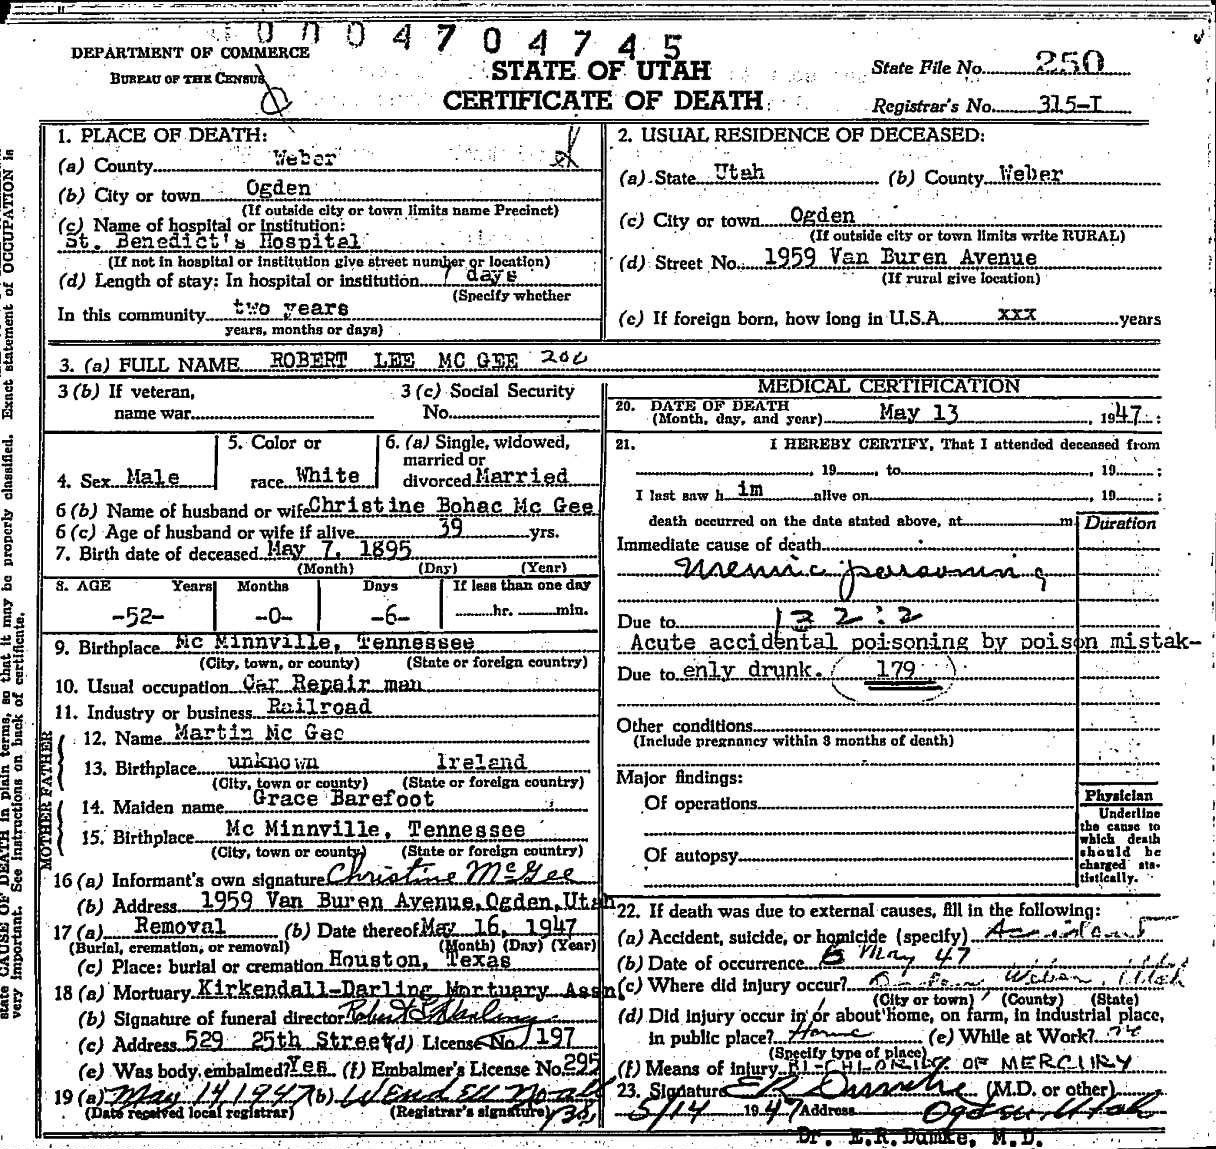 0004704745
DEPARTMENT OF COMMERCE
BUREAU OF THE CENSUS
STATE OF UTAH
CERTIFICATE OF DEATH
State File No. 250
Registrar's No. 315-I
1. PLACE OF DEATH:
(a) County Weber
(b) City or town Ogden
(If outside city or town limits name Precinct)
(c) Name of hospital or institution:
St. Benedict's Hospital
(If not in hospital or institution give street number or location)
(d) Length of stay: In hospital or institution 7 days
(Specify whether
In this community two years
years, months or days)
2. USUAL RESIDENCE OF DECEASED:
(a) State Utah (b) County Weber
(c) City or town Ogden
(If outside city or town limits write RURAL)
(d) Street No. 1959 Van Buren Avenue
(If rural give location)
(e) If foreign born, how long in U.S.A. xxx years
3. (a) FULL NAME ROBERT LEE MC GEE 200
3 (b) If veteran,
name war
3 (c) Social Security
No.
4. Sex Male
5. Color or
race White
6. (a) Single, widowed,
married or
divorced Married
6 (b) Name of husband or wife Christine Bohac Mc Gee
6 (c) Age of husband or wife if alive 39 yrs.
7. Birth date of deceased May 7, 1895
(Month) (Day) (Year)
8. AGE Years Months Days If less than one day
-52- -0- -6- hr. min.
9. Birthplace Mc Minnville, Tennessee
(City, town, or county) (State or foreign country)
10. Usual occupation Car Repair man
11. Industry or business Railroad
FATHER
12. Name Martin Mc Gee
13. Birthplace unknown Ireland
(City, town or county) (State or foreign country)
MOTHER
14. Maiden name Grace Barefoot
15. Birthplace Mc Minnville, Tennessee
(City, town or county) (State or foreign country)
16 (a) Informant's own signature Christine McGee
(b) Address 1959 Van Buren Avenue, Ogden, Utah
17 (a) Removal (b) Date thereof May 16, 1947
(Burial, cremation, or removal) (Month) (Day) (Year)
(c) Place: burial or cremation Houston, Texas
18 (a) Mortuary Kirkendall-Darling Mortuary Assn.
(b) Signature of funeral director
(c) Address 529 25th Street (d) License No. 197
(e) Was body embalmed? Yes (f) Embalmer's License No. 295
19 (a) May 14 1947 (b) Wendell Noall
(Date received local registrar) (Registrar's signature)
MEDICAL CERTIFICATION
20. DATE OF DEATH
(Month, day, and year) May 13, 1947:
21. I HEREBY CERTIFY, That I attended deceased from
, 19 , to , 19 ;
I last saw h im alive on , 19 ;
death occurred on the date stated above, at m.
Duration
Immediate cause of death
Uremic poisoning
Due to 132:2
Acute accidental poisoning by poison mistak-
Due to enly drunk. 179
Other conditions
(Include pregnancy within 3 months of death)
Major findings:
Of operations
Of autopsy
Physician
Underline
the cause to
which death
should be
charged sta-
tistically.
22. If death was due to external causes, fill in the following:
(a) Accident, suicide, or homicide (specify) Accident
(b) Date of occurrence 6 May 47
(c) Where did injury occur? Ogden, Weber, Utah
(City or town) (County) (State)
(d) Did injury occur in or about home, on farm, in industrial place,
in public place? Home (e) While at Work? no
(Specify type of place)
(f) Means of injury BI-CHLORIDE OF MERCURY
23. Signature E R Dumke (M.D. or other)
5/14 1947 Address Ogden, Utah
Dr. E.R. Dumke, M.D.
state CAUSE OF DEATH in plain terms, so that it may be properly classified. Exact statement of OCCUPATION is
very important. See instructions on back of certificate.